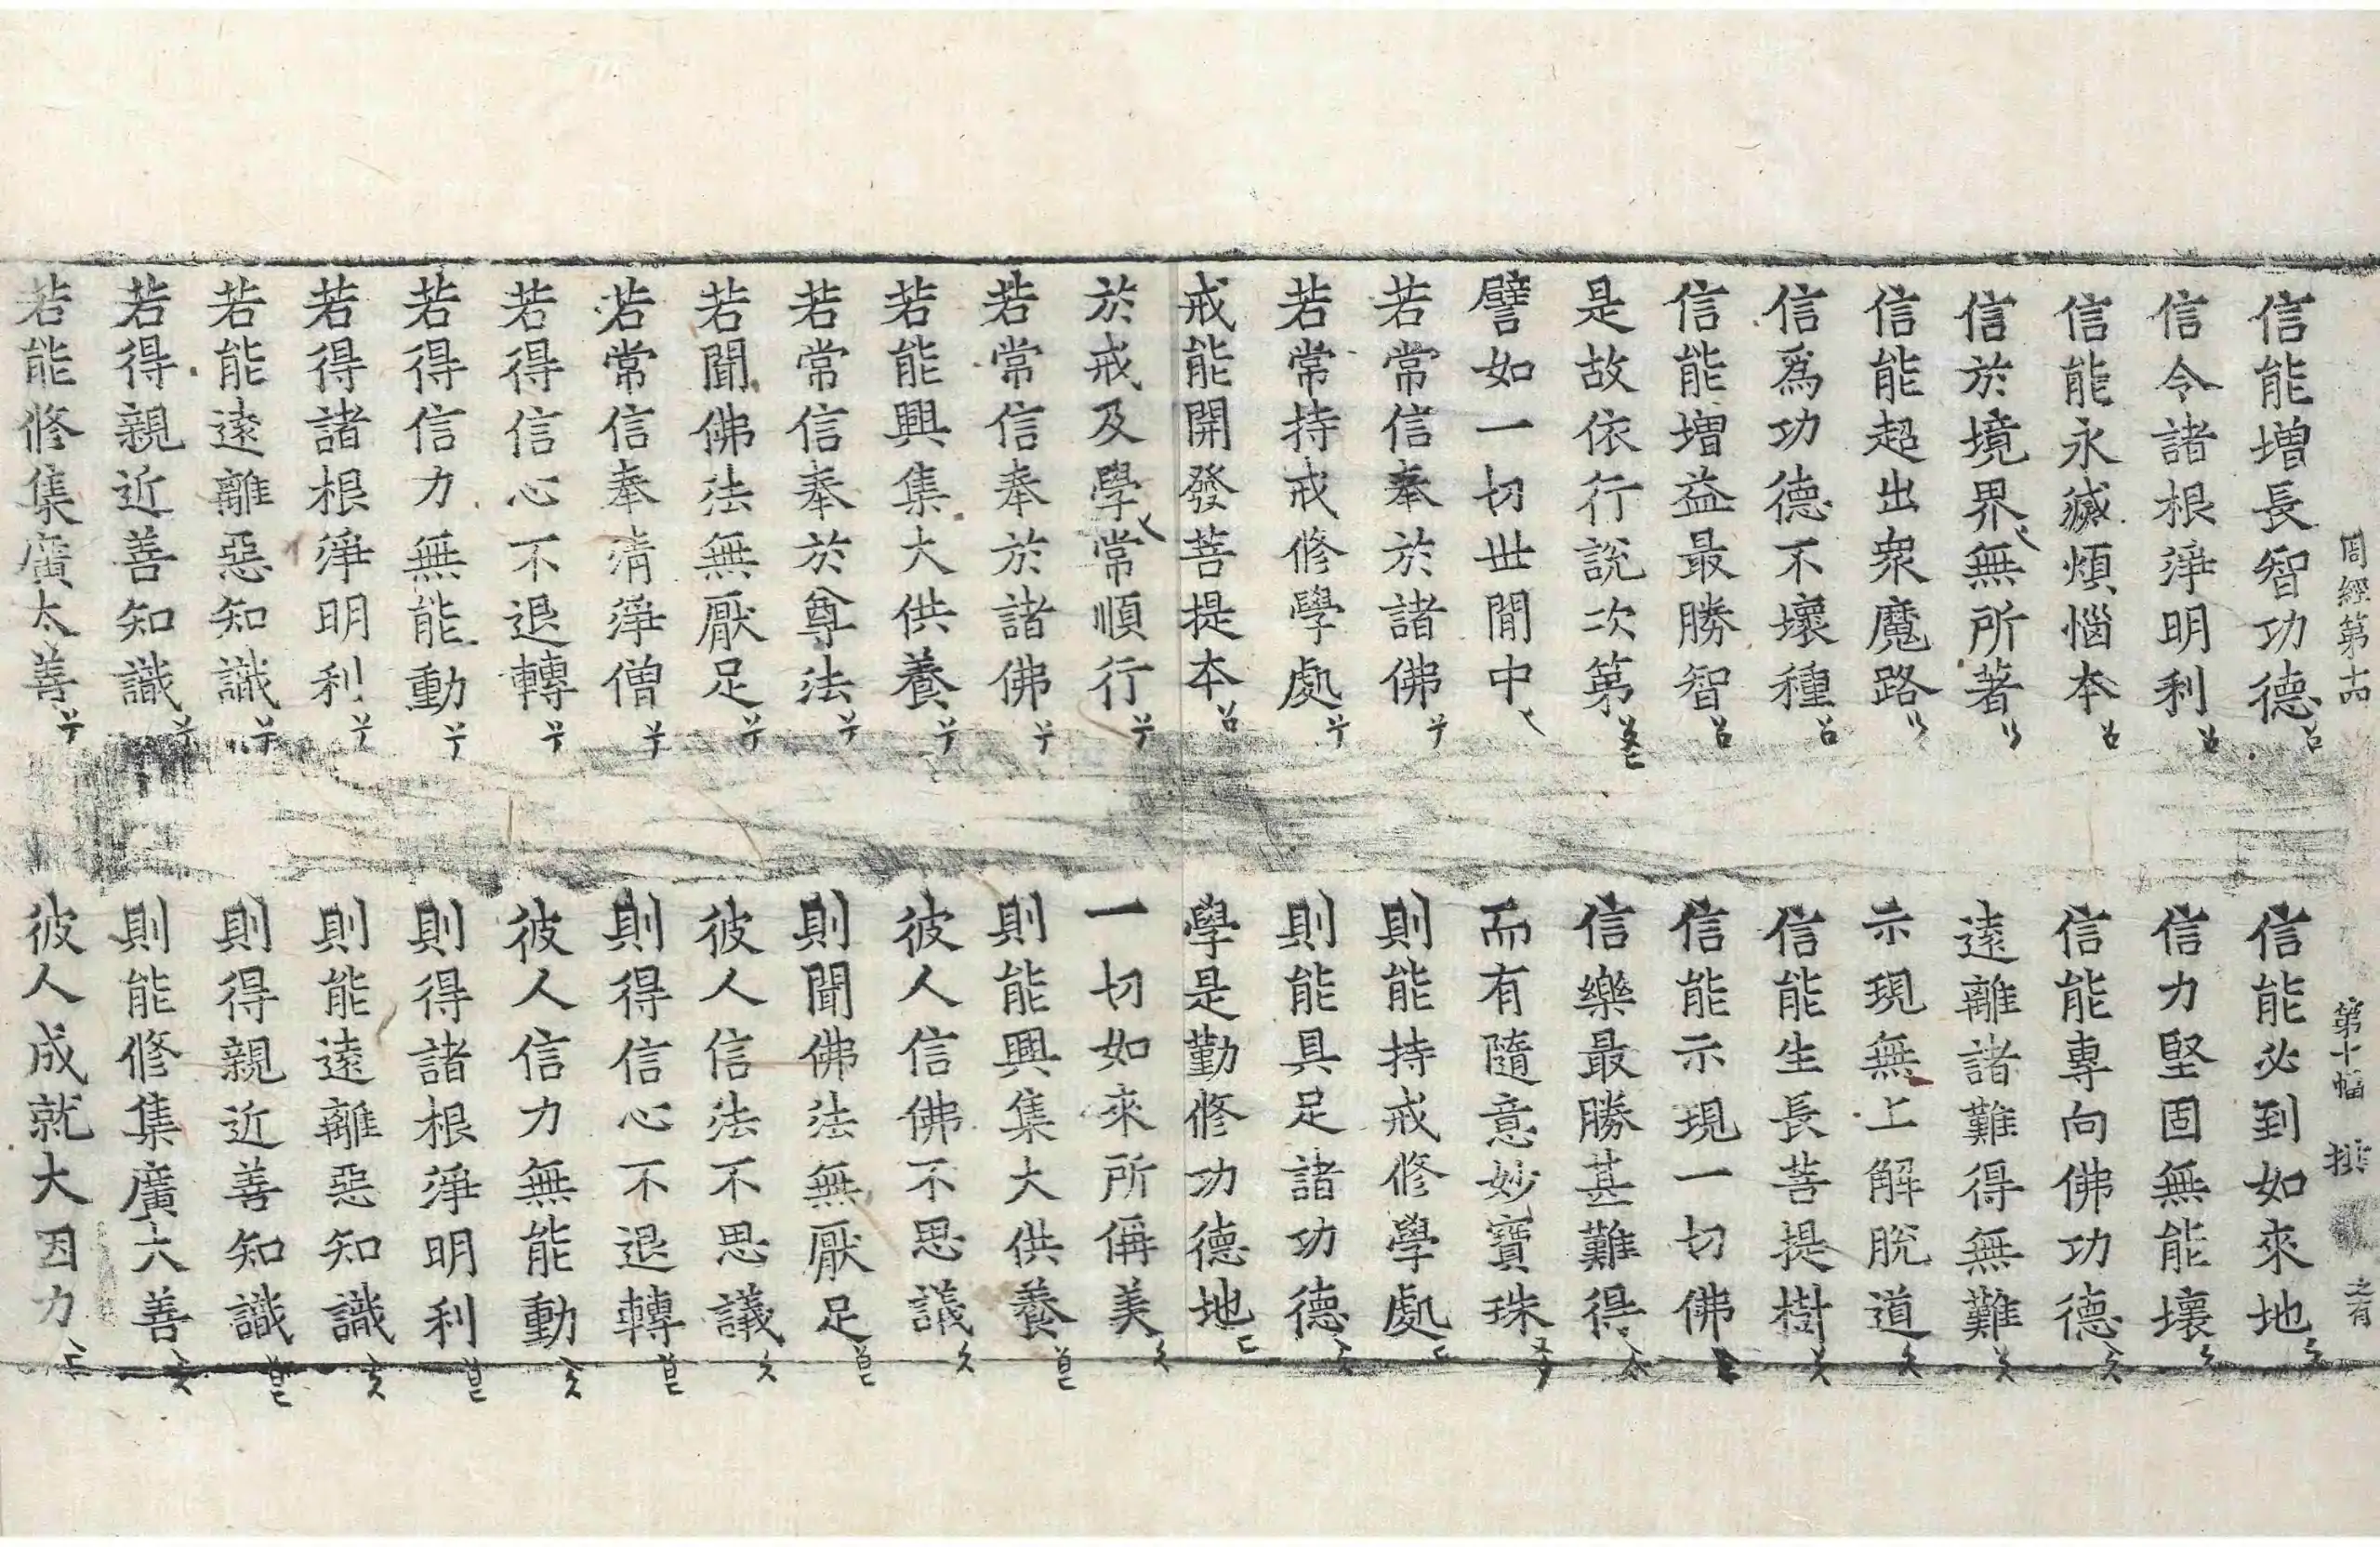 周經第十四 第十幅 排 之有
信能增長智功德 信能必到如來地
信令諸根淨明利 信力堅固無能壞
信能永滅煩惱本 信能專向佛功德
信於境界無所著 遠離諸難得無難
信能超出衆魔路 示現無上解脫道
信爲功德不壞種 信能生長菩提樹
信能增益最勝智 信能示現一切佛
是故依行說次第 信樂最勝甚難得
譬如一切世間中 而有隨意妙寶珠
若常信奉於諸佛 則能持戒修學處
若常持戒修學處 則能具足諸功德
戒能開發菩提本 學是勤修功德地
於戒及學常順行 一切如來所偁美
若常信奉於諸佛 則能興集大供養
若能興集大供養 彼人信佛不思議
若常信奉於尊法 則聞佛法無厭足
若聞佛法無厭足 彼人信法不思議
若常信奉清淨僧 則得信心不退轉
若得信心不退轉 彼人信力無能動
若得信力無能動 則得諸根淨明利
若得諸根淨明利 則能遠離惡知識
若能遠離惡知識 則得親近善知識
若得親近善知識 則能修集廣大善
若能修集廣大善 彼人成就大因力